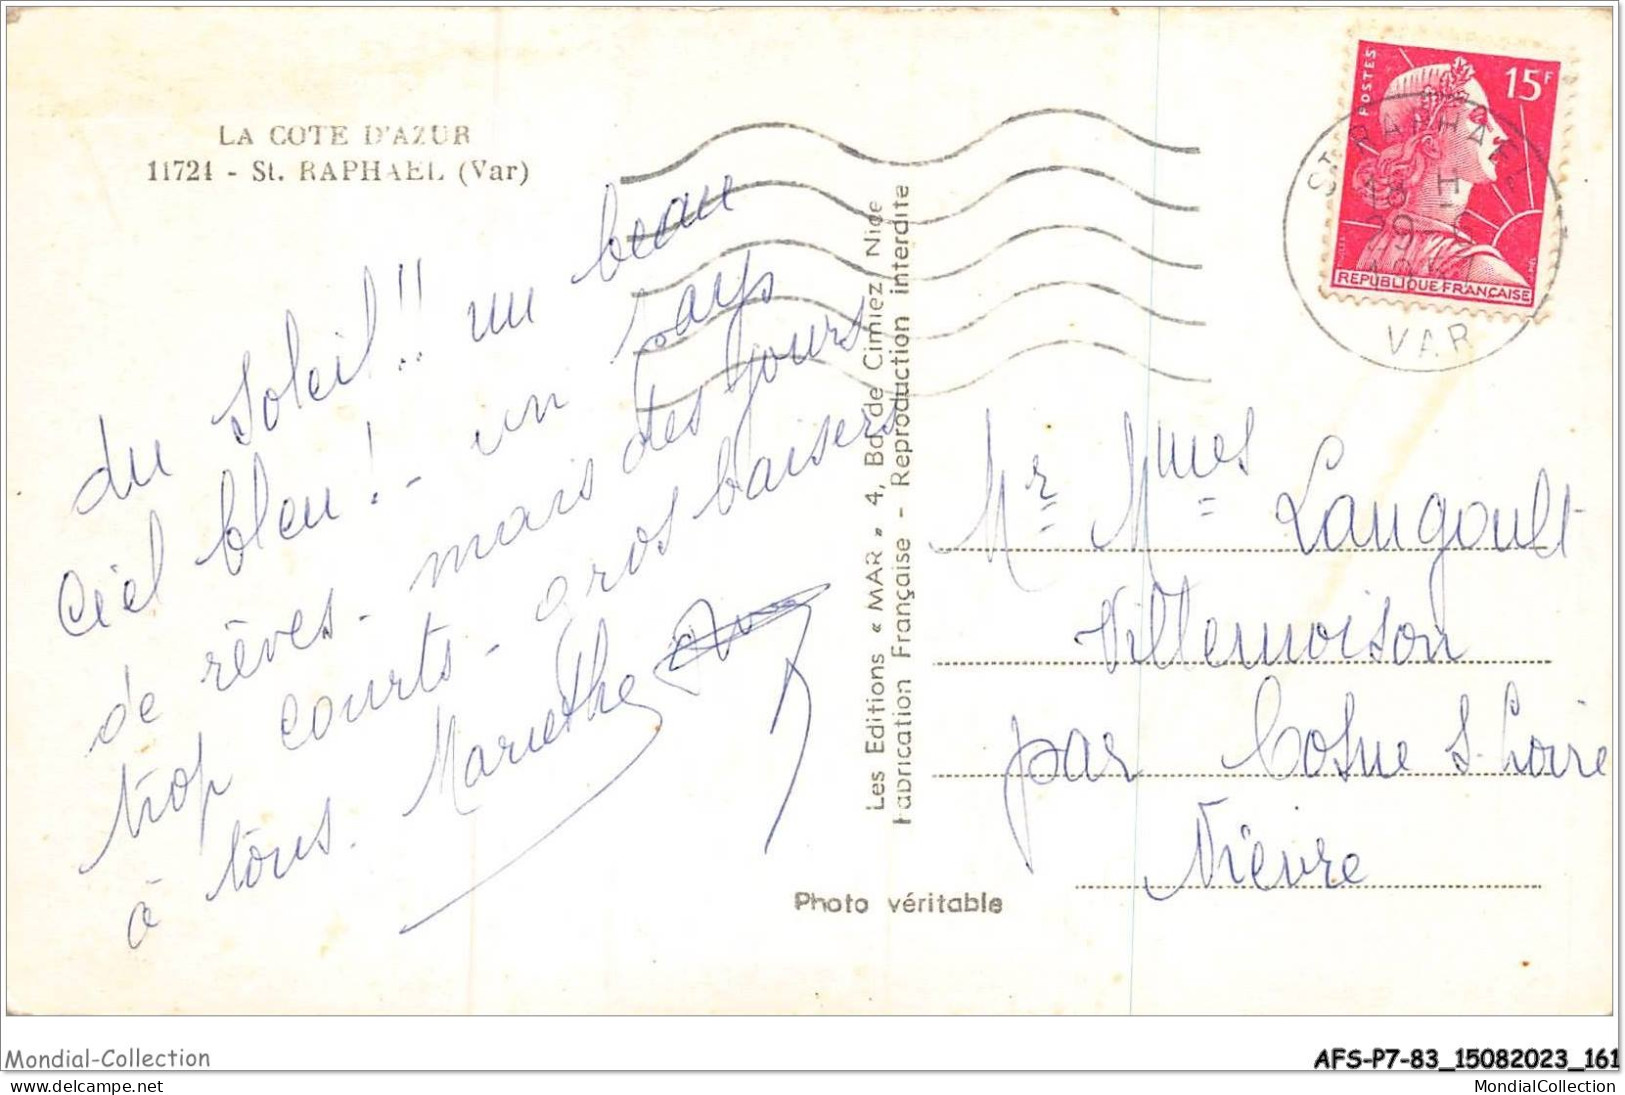 LA COTE D'AZUR
11721 - St. RAPHAEL (Var)
du soleil!! un beau
Ciel bleu! - un Pays
de rêves - mais des jours
trop courts - gros baisers
à tous. Mariethe
Les Editions « MAR » 4, Bd de Cimiez Nice
Fabrication Française - Reproduction interdite
Photo véritable
POSTES
15F
REPUBLIQUE FRANÇAISE
ST RAPHAEL
18 H
29
VAR
Mr Mmes Langoult
Villemoison
par Cosne s. Loire
Nièvre
Mondial-Collection
AFS-P7-83_15082023_161
www.delcampe.net
MondialCollection